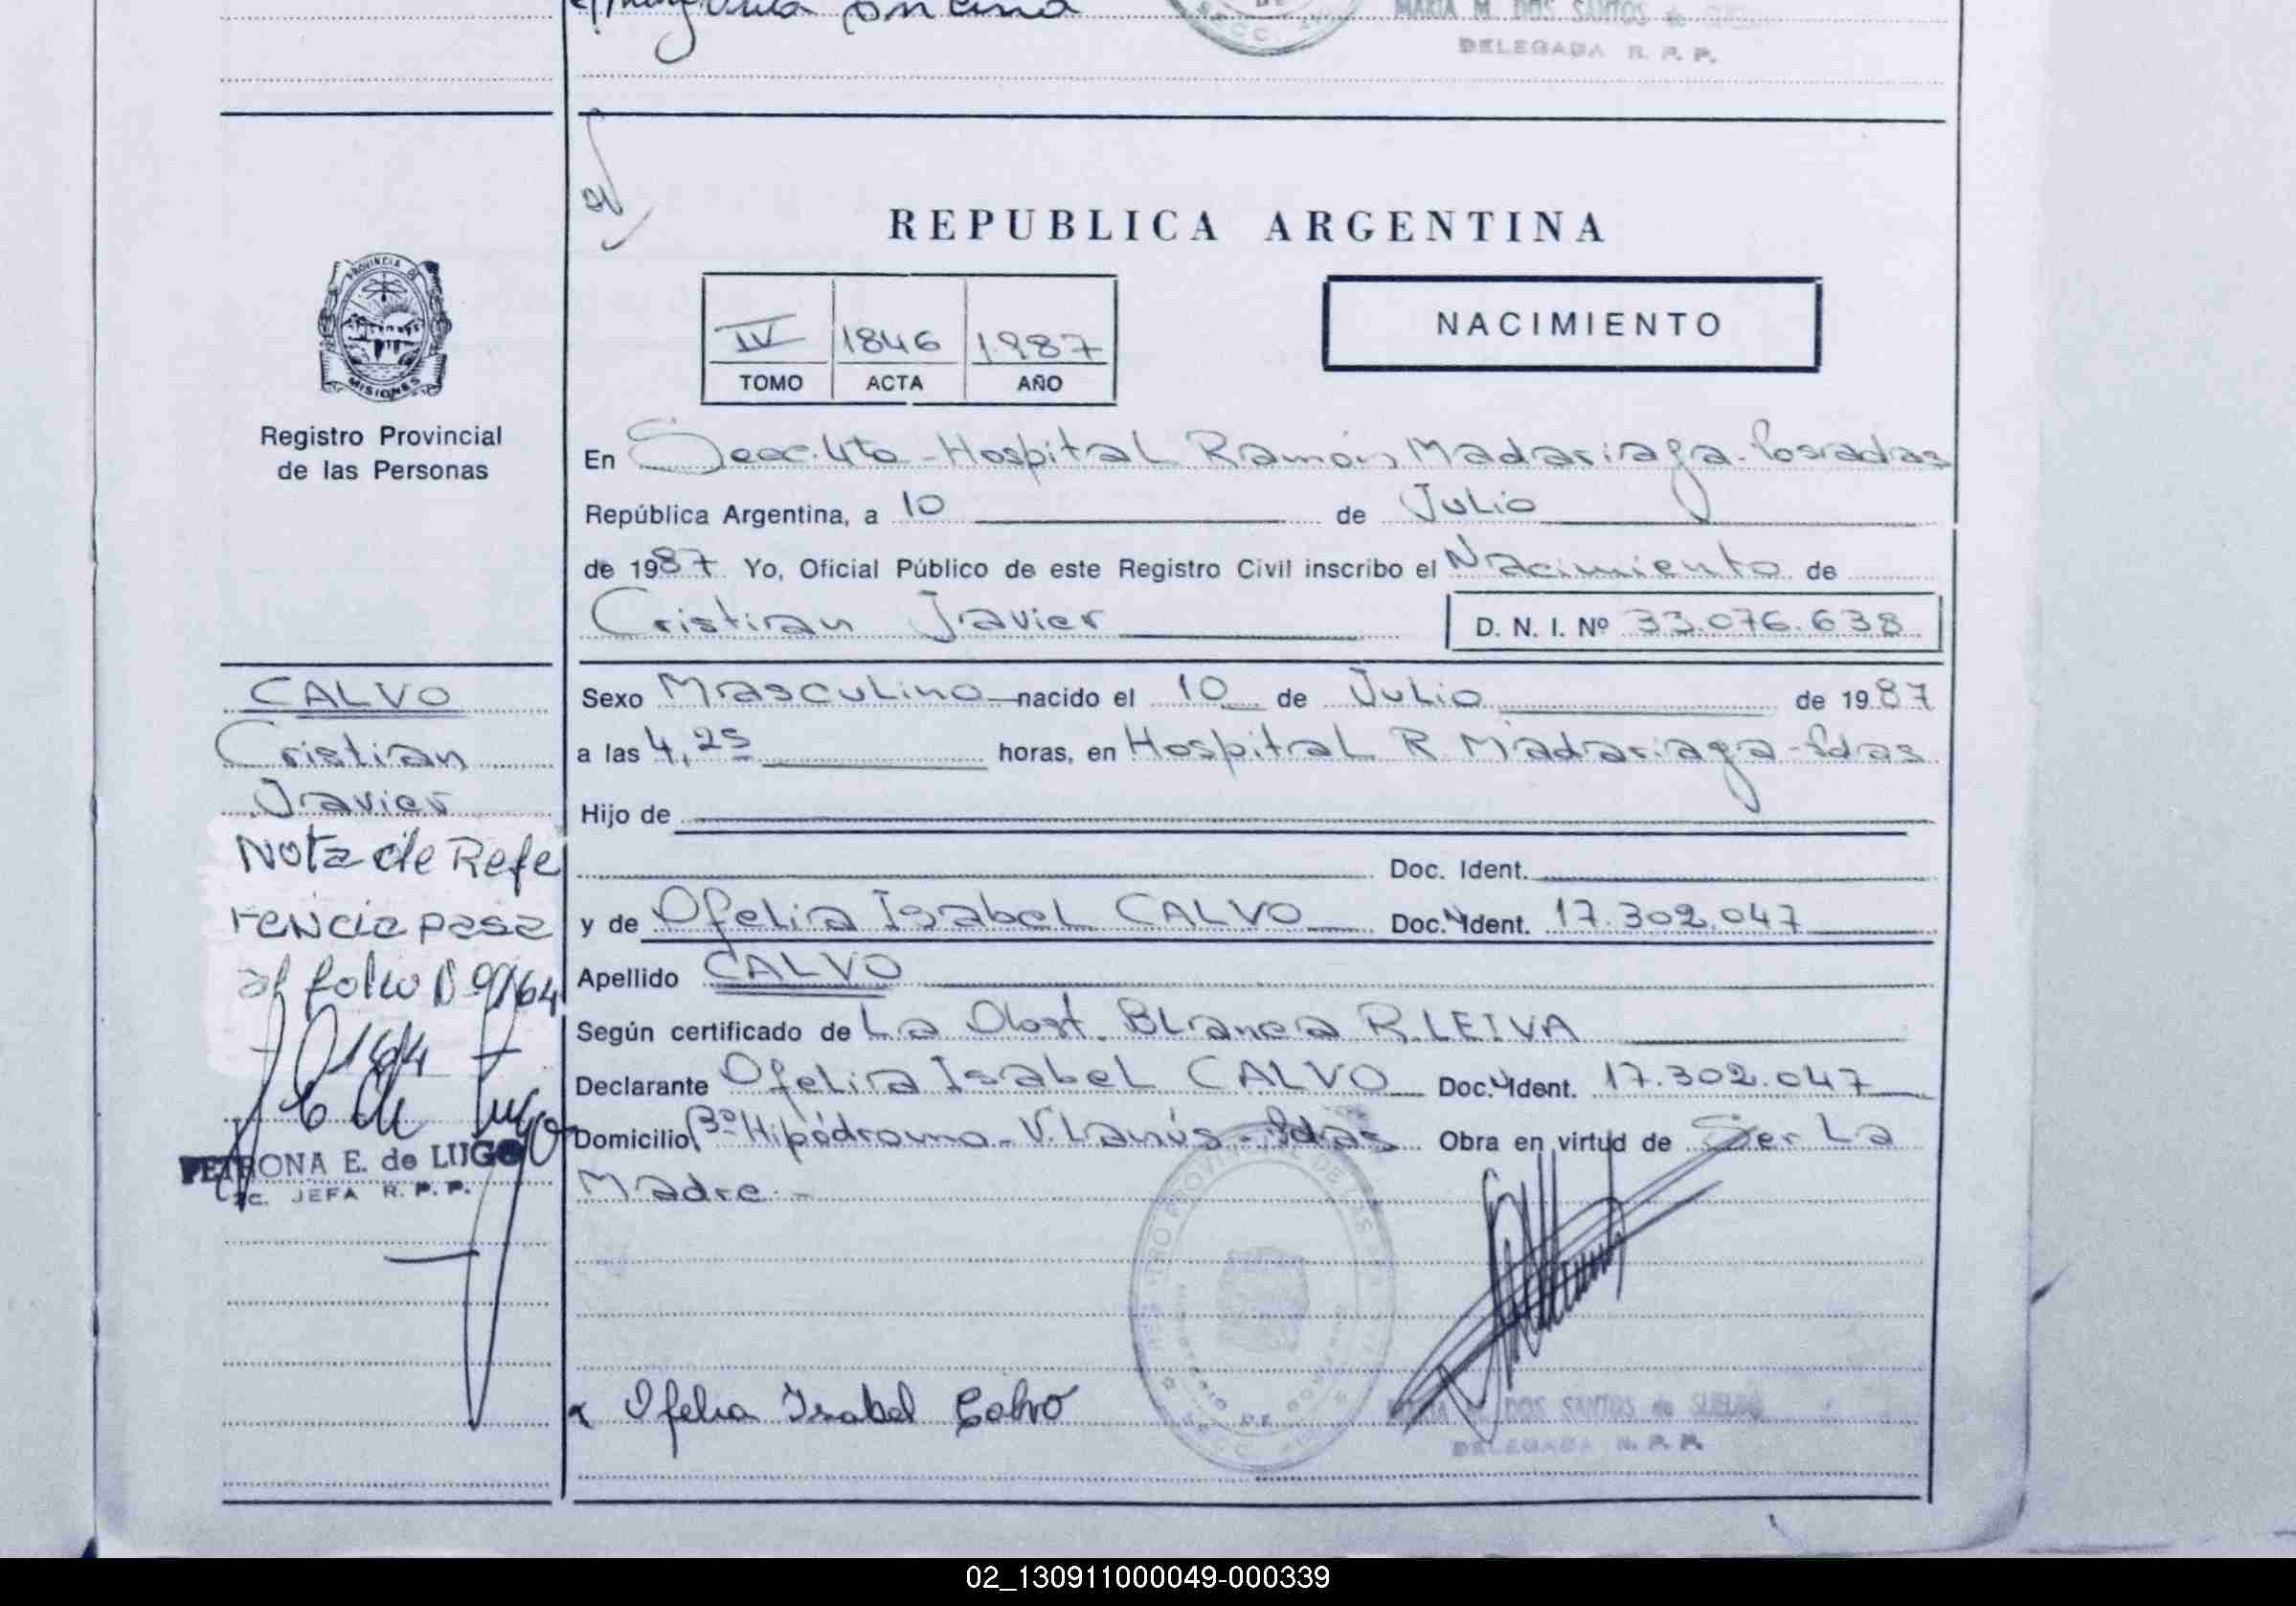 MARIA M. DOS SANTOS de
DELEGADA R. P. P.
REPUBLICA ARGENTINA
IV 1846 1987
TOMO ACTA AÑO
NACIMIENTO
PROVINCIA DE
MISIONES
Registro Provincial
de las Personas
En Secc. 4ta - Hospital Ramón Madariaga - Posadas
República Argentina, a 10 de Julio
de 1987 Yo, Oficial Público de este Registro Civil inscribo el Nacimiento de
Cristian Javier D. N. I. Nº 33.076.638
CALVO
Cristian
Javier
Nota de Refe
rencia pasa
al folio Nº 164
PETRONA E. de LUGO
JEFA R. P. P.
Sexo Masculino nacido el 10 de Julio de 1987
a las 4,25 horas, en Hospital R. Madariaga - Pdas
Hijo de
Doc. Ident.
y de Ofelia Isabel CALVO Doc. Ident. 17.302.047
Apellido CALVO
Según certificado de La Obst. Blanca R. LEIVA
Declarante Ofelia Isabel CALVO Doc. Ident. 17.302.047
Domicilio Bº Hipódromo - V. Lanús - Pdas Obra en virtud de Ser La
Madre -
Ofelia Isabel Calvo
DOS SANTOS de
DELEGADA R. P. P.
02_130911000049-000339